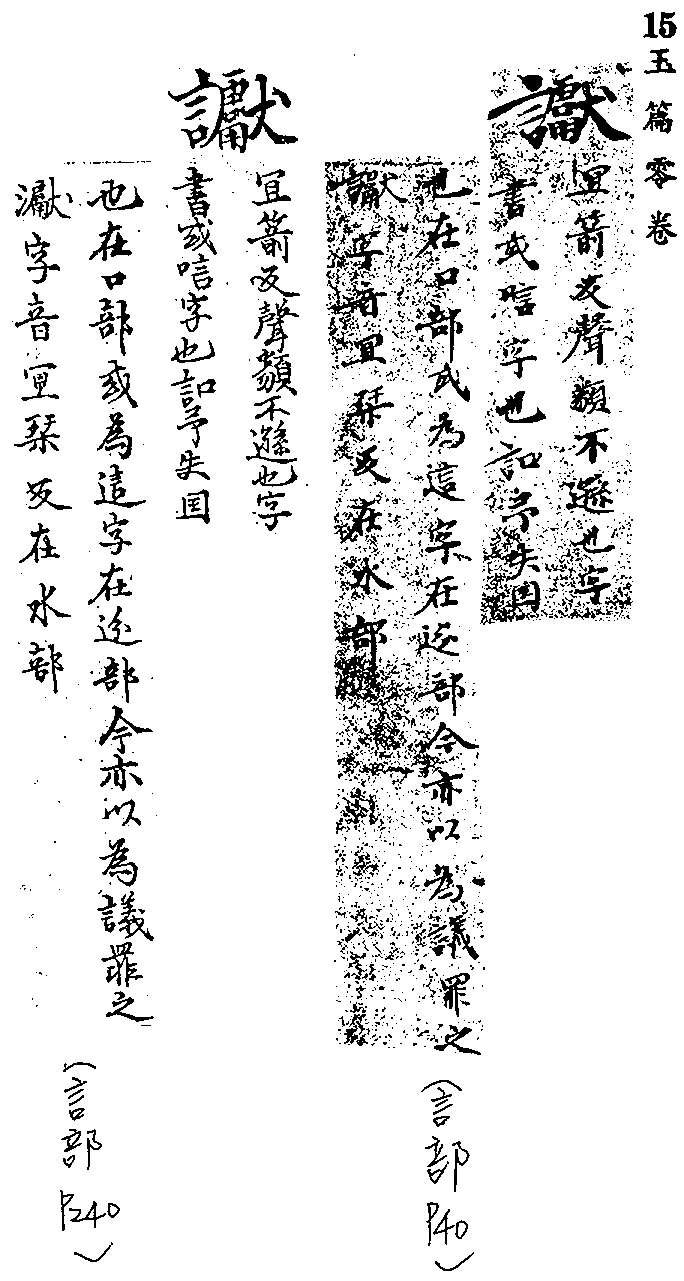 15玉篇零卷
讞
冝箭反聲類不遜也字
書或唁字也訟予失囯
也在口部或為這字在辵部今亦以為議罪之
讞字音冝桀反在水部
(言部P40)
讞
冝箭反聲類不遜也字
書或唁字也訟予失囯
也在口部或為這字在辵部今亦以為議罪之
灁字音冝桀反在水部
(言部P240)